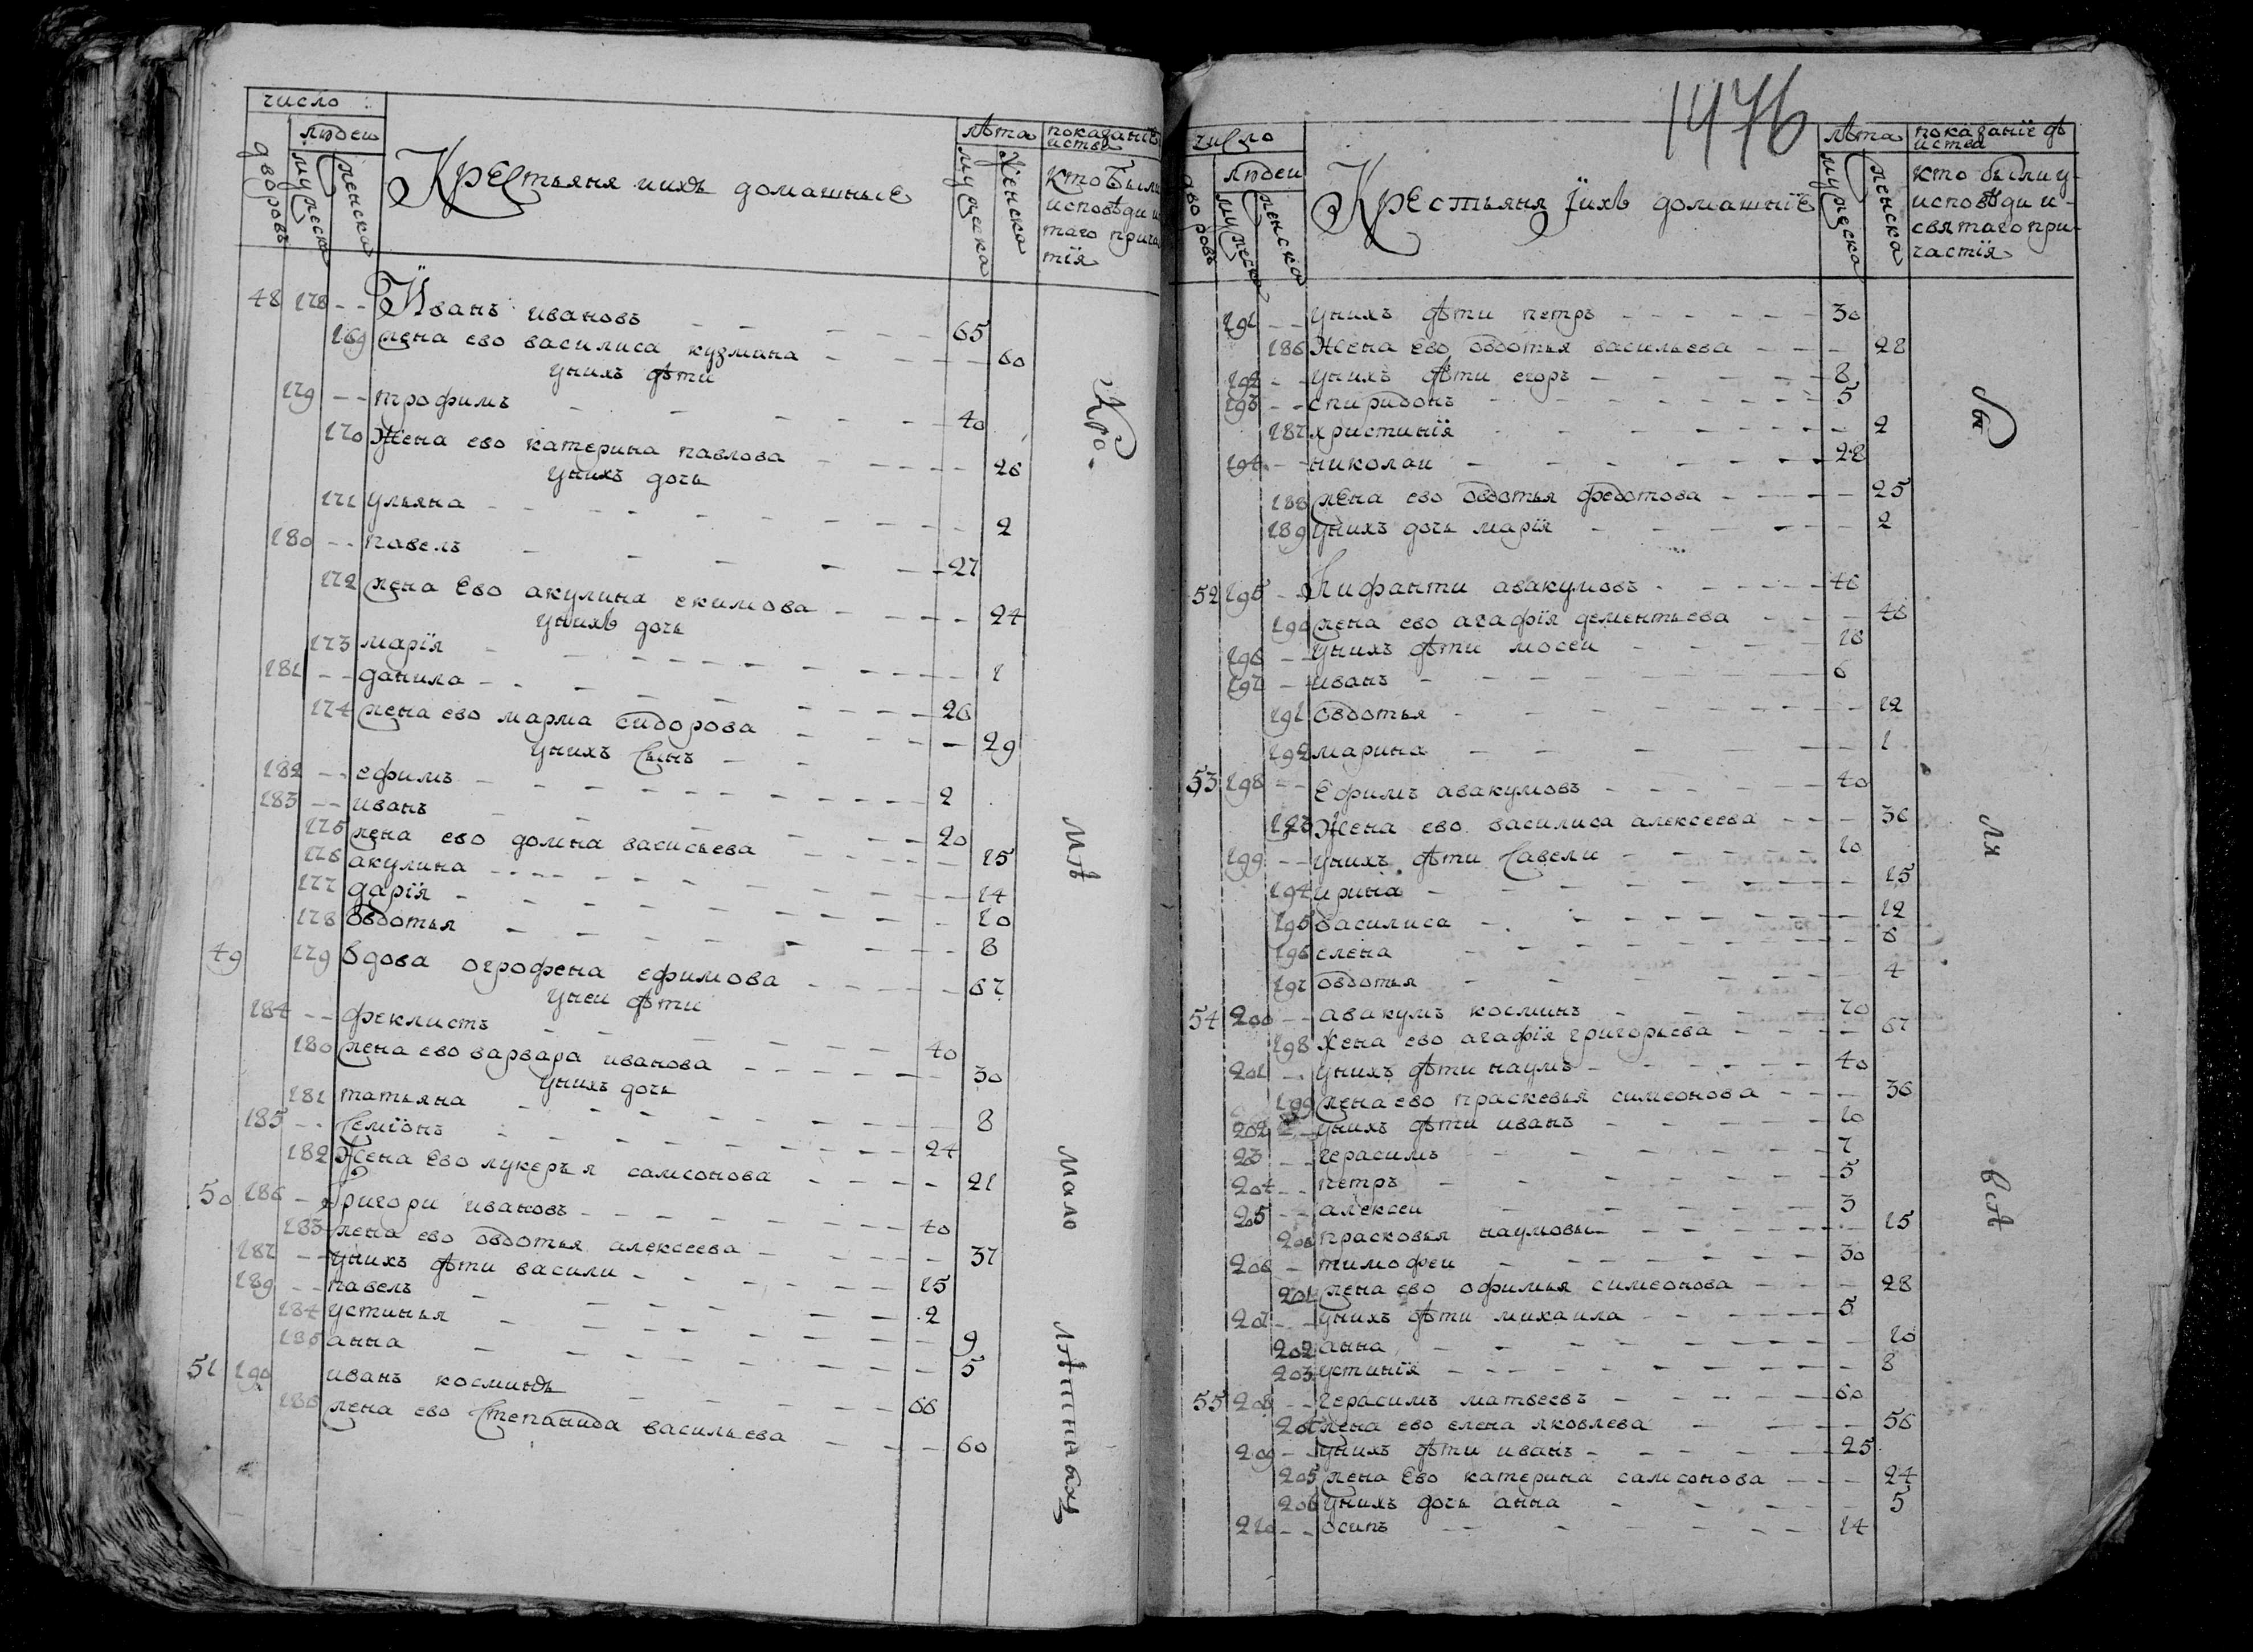 число
людеи
дворовъ
мужеска
женска
Крестьяня иихъ домашные
лѣта
мужеска
женска
показаниѣ
иства
кто были
исповѣди и
таго прича
тїя
48 178 -- Иванъ ивановъ 65
169 жена ево василиса кузмина 60
униxъ дѣти
179 -- трофимъ 40
170 Жена ево катерина павлова 26
унихъ дочь
171 ульяна 2
180 -- павелъ 27
172 жена Ево акулина екимова 24
унихъ дочь
173 марїя 1
181 -- данила 26
174 жена ево марма сидорова 29
унихъ Сынъ
182 -- ефимъ 2
183 -- иванъ 20
175 жена ево домна васисьева 15
176 акулина 14
177 дарїя 10
178 овдотья 8
49 179 вдова огрофена ефимова 67
унеи дѣти
184 -- феклистъ 40
180 жена ево варвара иванова 30
унихъ дочь
181 татьяна 8
185 -- Семїонъ 24
182 Жена Ево лукерья самсонова 21
50 186 -- Григори ивановъ 40
183 жена ево овдотья алексеева 37
187 -- унихъ дѣти васили 15
189 -- павелъ 2
184 устинья 9
185 анна 5
51 190 иванъ косминъ 66
186 жена ево Степанида васильева 60
Кро.
мѣ
мало
лѣтныхъ
1476
число
людеи
дворовъ
мужеска
женска
Крестьяня Їихъ домашнїе
лѣта
мужеска
женска
показанїе дѣ
иства
кто были у
исповѣди и
святаго при
частїя
191 -- унихъ дѣти петръ 30
186 Жена Ево овдотья васильева 28
192 -- унихъ дѣти егоръ 8
193 -- спиридонъ 5
187 христинїя 2
194 -- николаи 28
188 жена ево овдотья федотова 25
189 унихъ дочь марїя 2
52 195 -- Лифанти авакумовъ 46
190 жена ево агафїя дементьева 46
196 -- унихъ дѣти мосеи 18
197 -- иванъ 6
191 овдотья 12
192 марина 1
53 198 -- Ефимъ авакумовъ 40
193 Жена ево василиса алексеева 36
199 -- унихъ дѣти Савели 10
194 ирина 15
195 василиса 12
196 елена 6
197 овдотья 4
54 200 -- авакумъ косминъ 70
198 Жена ево агафїя григорьева 67
201 -- унихъ дѣти наумъ 40
199 жена ево праскевья симеонова 36
202 -- унихъ дѣти иванъ 10
23 -- герасимъ 7
204 -- петръ 5
205 -- алексеи 3
200 прасковья наумовы 15
206 -- тимофеи 30
201 жена ево офимья симеонова 28
207 -- унихъ дѣти михаила 5
202 анна 10
203 устинїя 8
55 208 -- герасимъ матвеевъ 60
204 жена ево елена яковлева 56
209 -- унихъ дѣти иванъ 25
205 жена Ево катерина самсонова 24
206 унихъ дочь анна 5
210 -- осипъ 14
бы
ля
всѣ